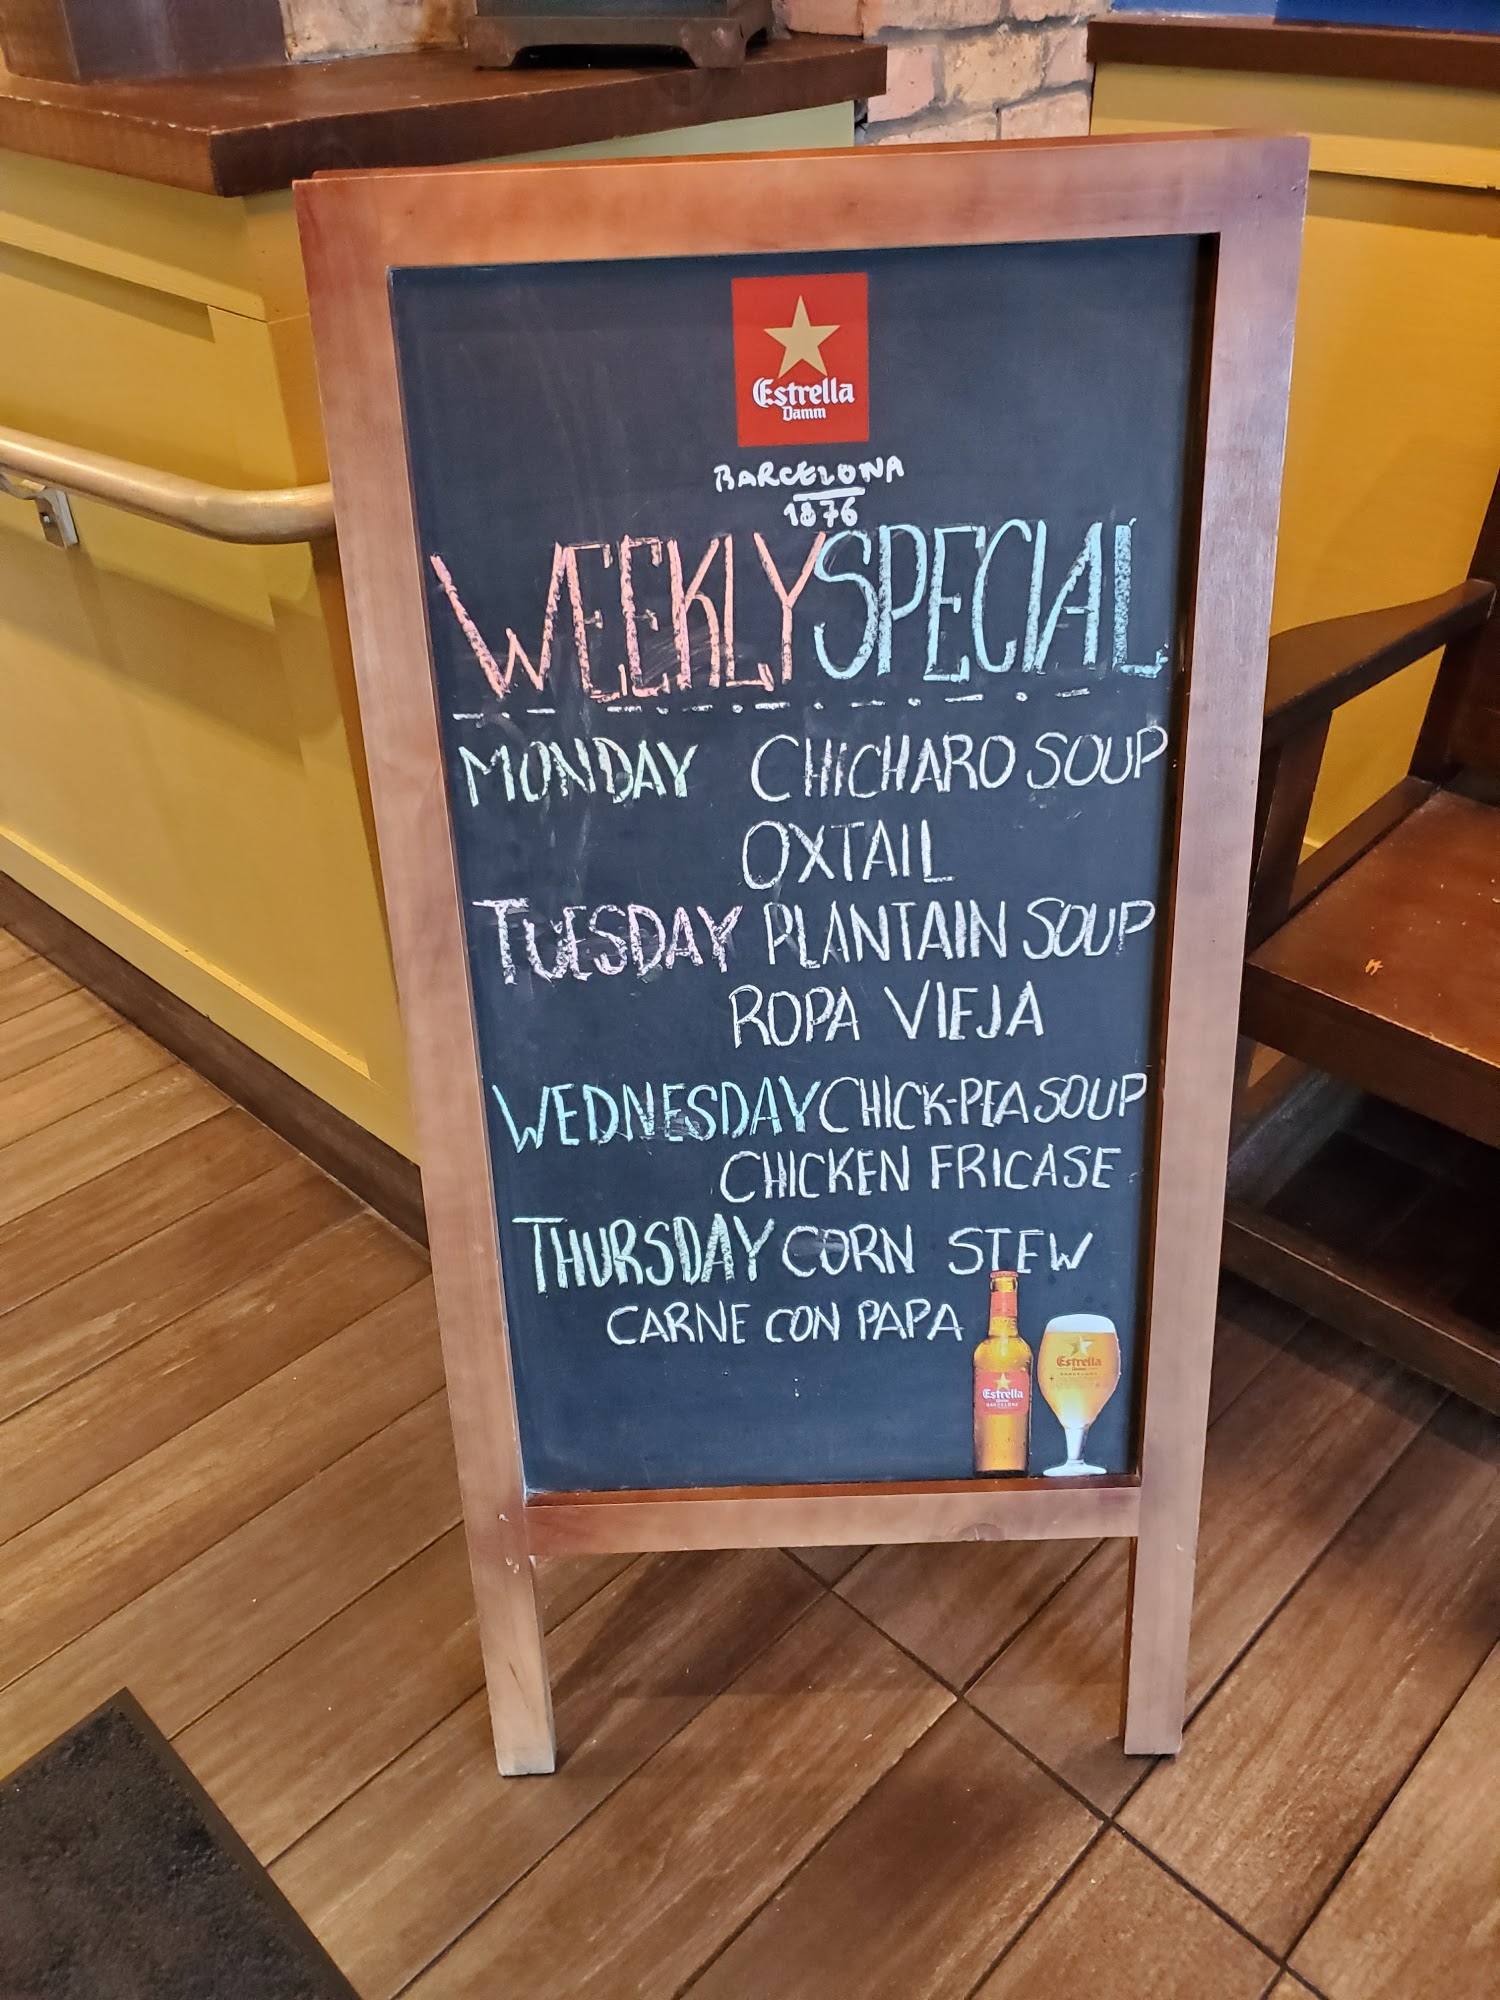 Estrella
Damm
BARCELONA
1876
WEEKLY SPECIAL
MONDAY CHICHARO SOUP
OXTAIL
TUESDAY PLANTAIN SOUP
ROPA VIEJA
WEDNESDAY CHICK-PEA SOUP
CHICKEN FRICASE
THURSDAY CORN STEW
CARNE CON PAPA
Estrella
Damm
BARCELONA
Estrella
Damm
BARCELONA